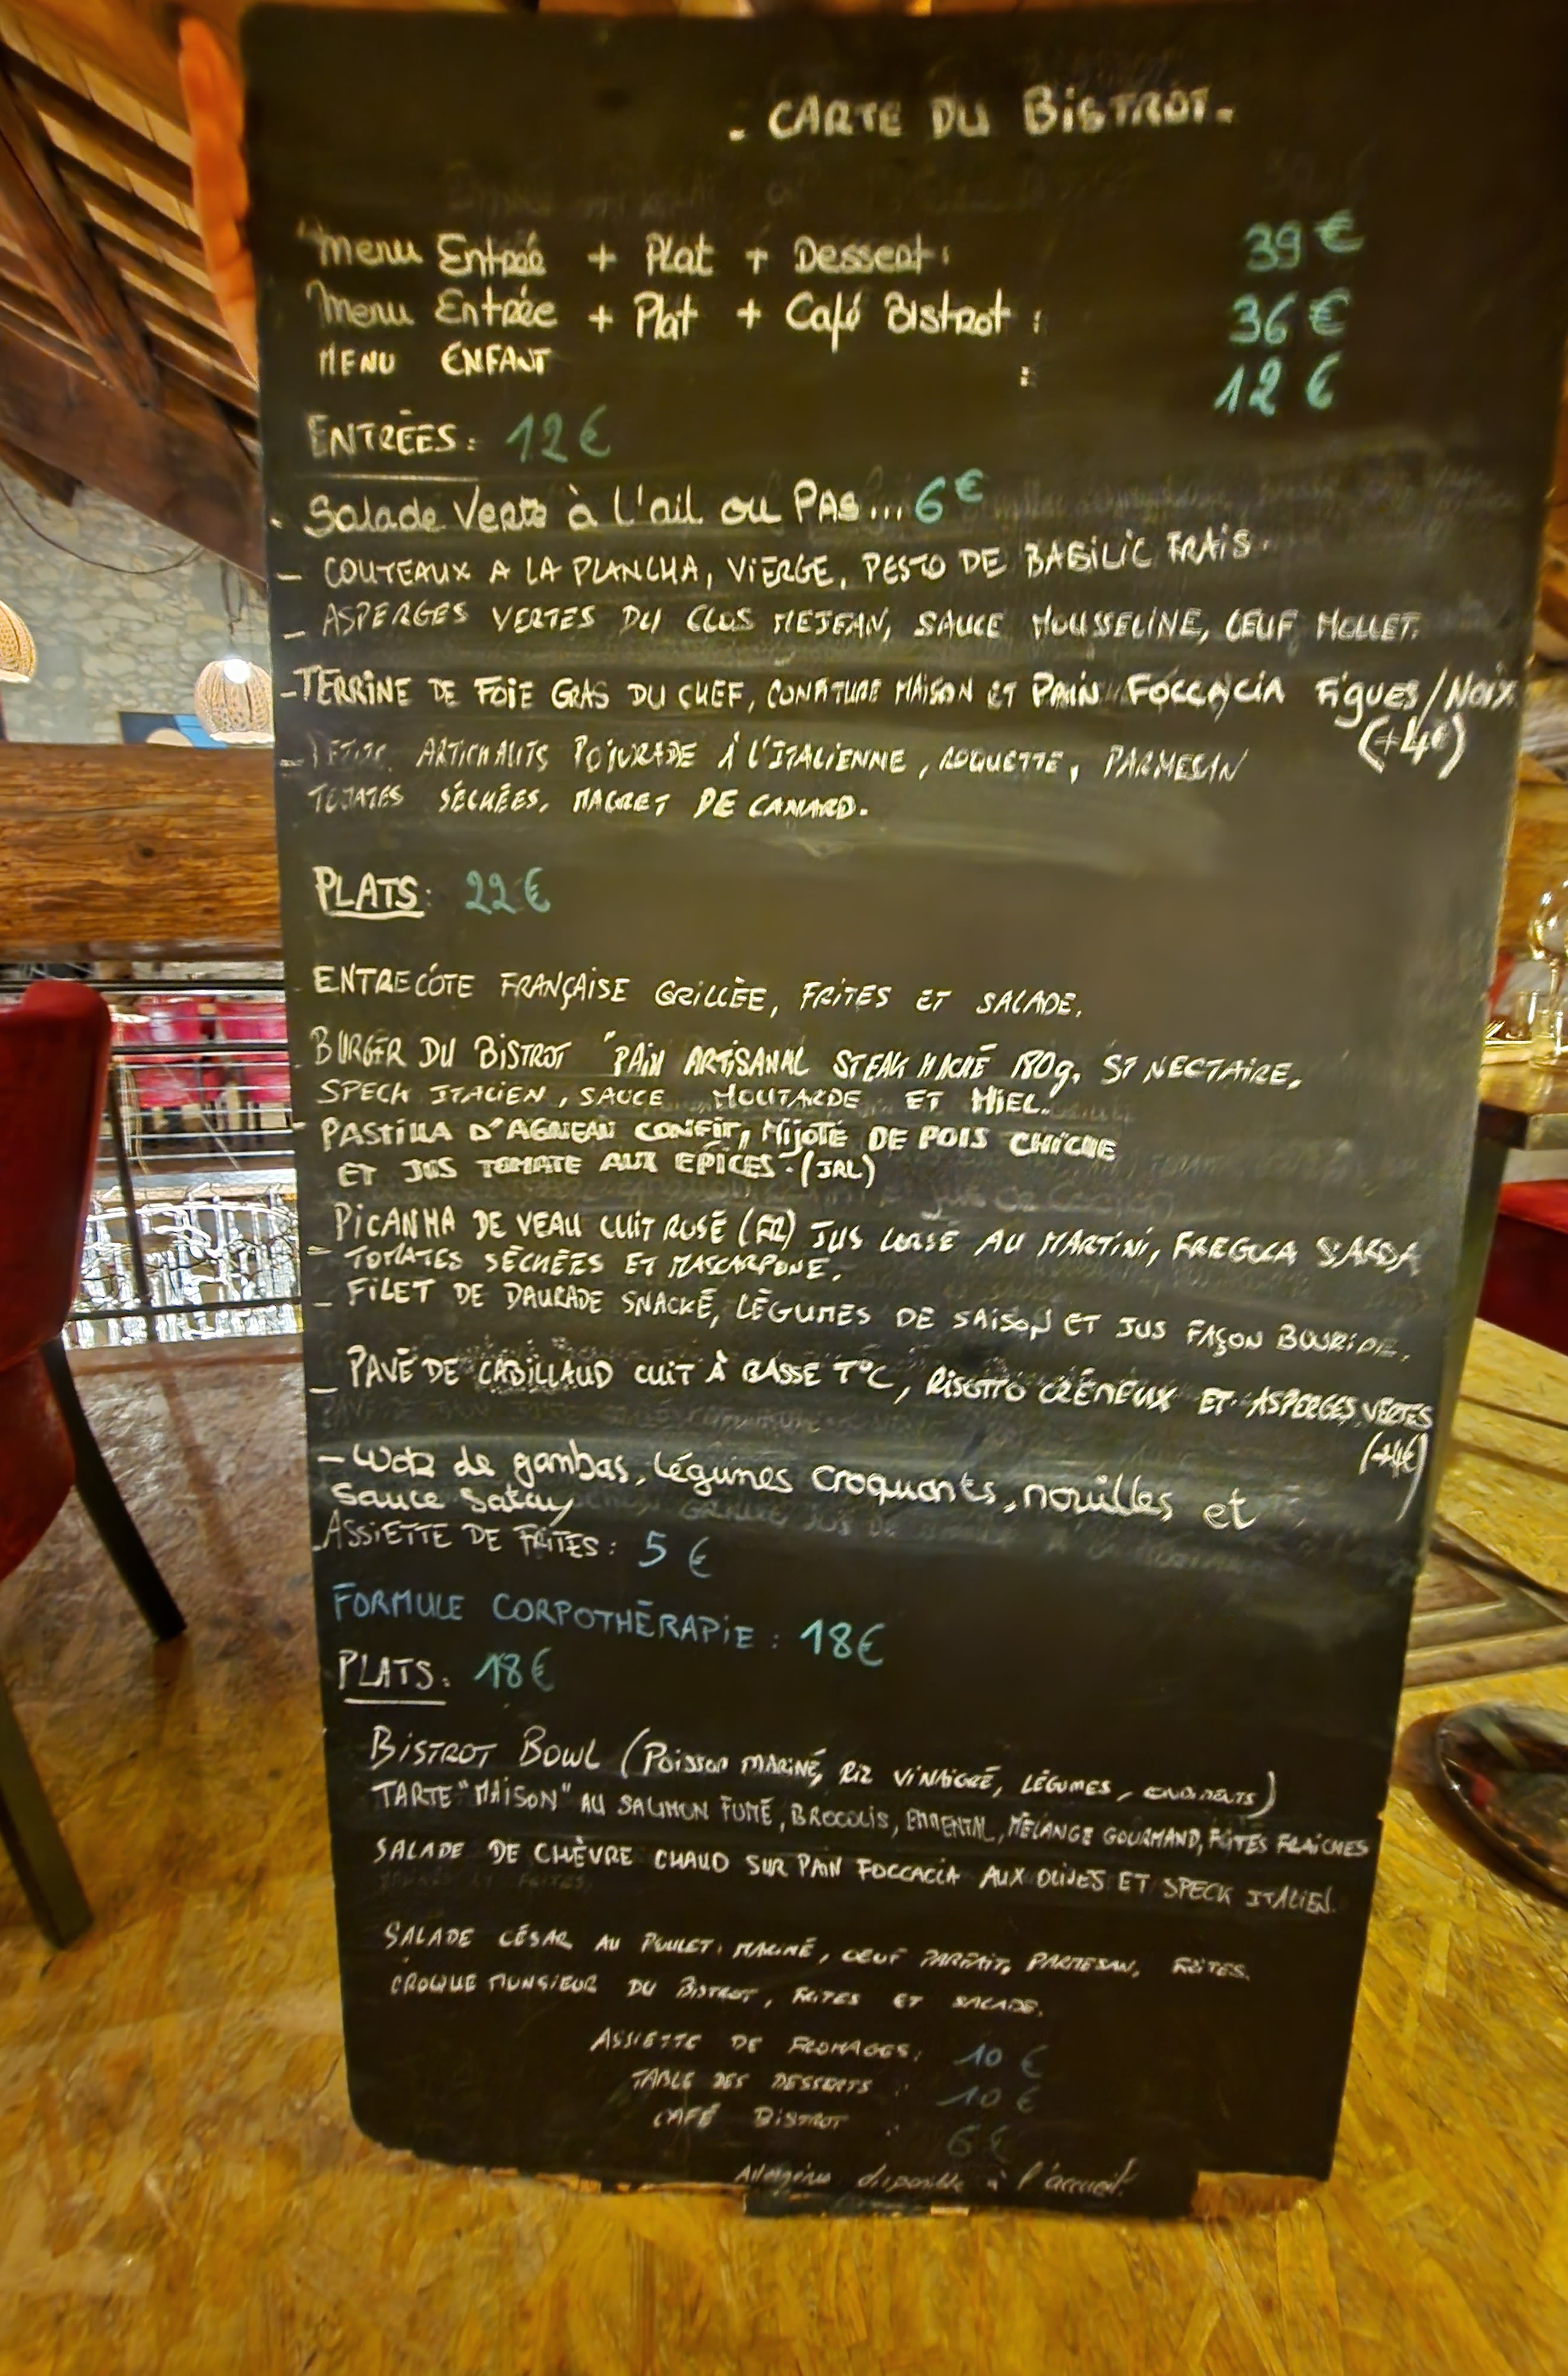 - CARTE DU BISTROT -
Menu Entrée + Plat + Dessert : 39 €
Menu Entrée + Plat + Café Bistrot : 36 €
MENU ENFANT : 12 €
ENTRÉES : 12 €
- Salade Verte à L'ail ou PAS... 6 €
- COUTEAUX A LA PLANCHA, VIERGE, PESTO DE BASILIC FRAIS.
- ASPERGES VERTES DU CLOS MEJEAN, SAUCE MOUSSELINE, OEUF MOLLET.
- TERRINE DE FOIE GRAS DU CHEF, CONFITURE MAISON ET PAIN FOCCACCIA Figues/Noix
(+4€)
- PETITS ARTICHAUTS POIVRADE À L'ITALIENNE, ROQUETTE, PARMESAN
TOMATES SÉCHÉES, MAGRET DE CANARD.
PLATS : 22 €
- ENTRECÔTE FRANÇAISE GRILLÉE, FRITES ET SALADE.
- BURGER DU BISTROT "PAIN ARTISANAL STEAK HACHÉ 180g, ST NECTAIRE,
SPECK ITALIEN, SAUCE MOUTARDE ET MIEL."
- PASTILLA D'AGNEAU CONFIT, MIJOTÉ DE POIS CHICHE
ET JUS TOMATE AUX EPICES. (IRL)
- PICANHA DE VEAU CUIT ROSÉ (FR) JUS CORSÉ AU MARTINI, FREGOLA SARDA
TOMATES SÉCHÉES ET MASCARPONE.
- FILET DE DAURADE SNACKÉ, LÉGUMES DE SAISON ET JUS FAÇON BOURIDE.
- PAVÉ DE CABILLAUD CUIT À BASSE T°C, RISOTTO CRÉMEUX ET ASPERGES VERTES
(+4€)
- Wok de gambas, légumes croquants, nouilles et
sauce satay
- ASSIETTE DE FRITES : 5 €
FORMULE CORPOTHÉRAPIE : 18€
PLATS : 18€
BISTROT BOWL (POISSON MARINÉ, RIZ VINAIGRÉ, LÉGUMES,)
TARTE "MAISON" AU SAUMON FUMÉ, BROCOLIS, EMMENTAL, MÉLANGE GOURMAND, FRITES FRAICHES
SALADE DE CHÈVRE CHAUD SUR PAIN FOCCACIA AUX OLIVES ET SPECK ITALIEN.
SALADE CÉSAR AU POULET MARINÉ, OEUF PARFAIT, PARMESAN, FRITES.
CROQUE MONSIEUR DU BISTROT, FRITES ET SALADE.
ASSIETTE DE FROMAGES : 10 €
TABLE DES DESSERTS : 10 €
CAFÉ BISTROT : 6 €
Allergènes disponible à l'accueil.